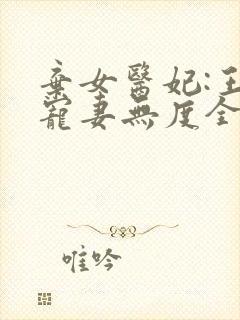 棄女醫妃:王
寵妻無度全
唯吟